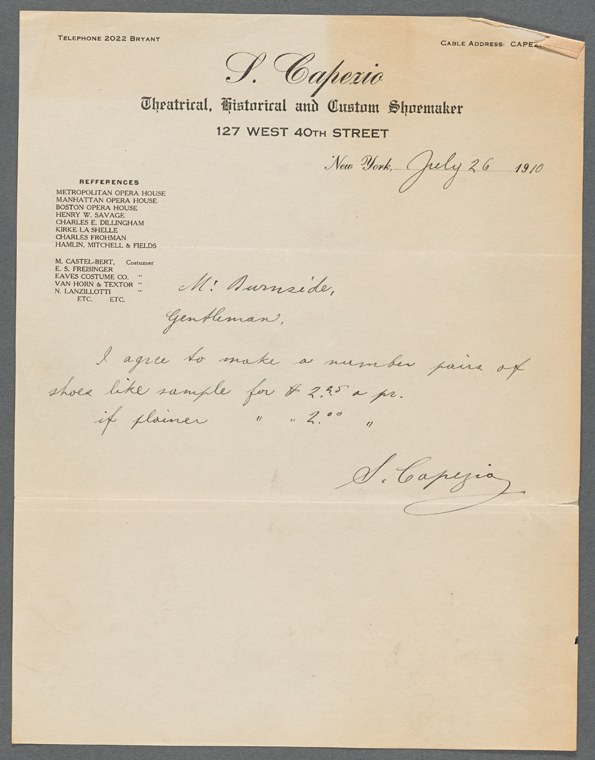 Telephone 2022 Bryant
Cable Address: CAPEZ
S. Capezio
Theatrical, Historical and Custom Shoemaker
127 WEST 40TH STREET
New York, July 26 1910
REFFERENCES
METROPOLITAN OPERA HOUSE
MANHATTAN OPERA HOUSE
BOSTON OPERA HOUSE
HENRY W. SAVAGE
CHARLES E. DILLINGHAM
KIRKE LA SHELLE
CHARLES FROHMAN
HAMLIN, MITCHELL & FIELDS
M. CASTEL-BERT, Costumer
E. S. FREISINGER "
EAVES COSTUME CO. "
VAN HORN & TEXTOR "
N. LANZILLOTTI "
ETC. ETC.
Mr Burnside,
Gentleman,
I agree to make a number pairs of
shoes like sample for $ 2.25 a pr.
if plainer " " 2.00 "
S. Capezio